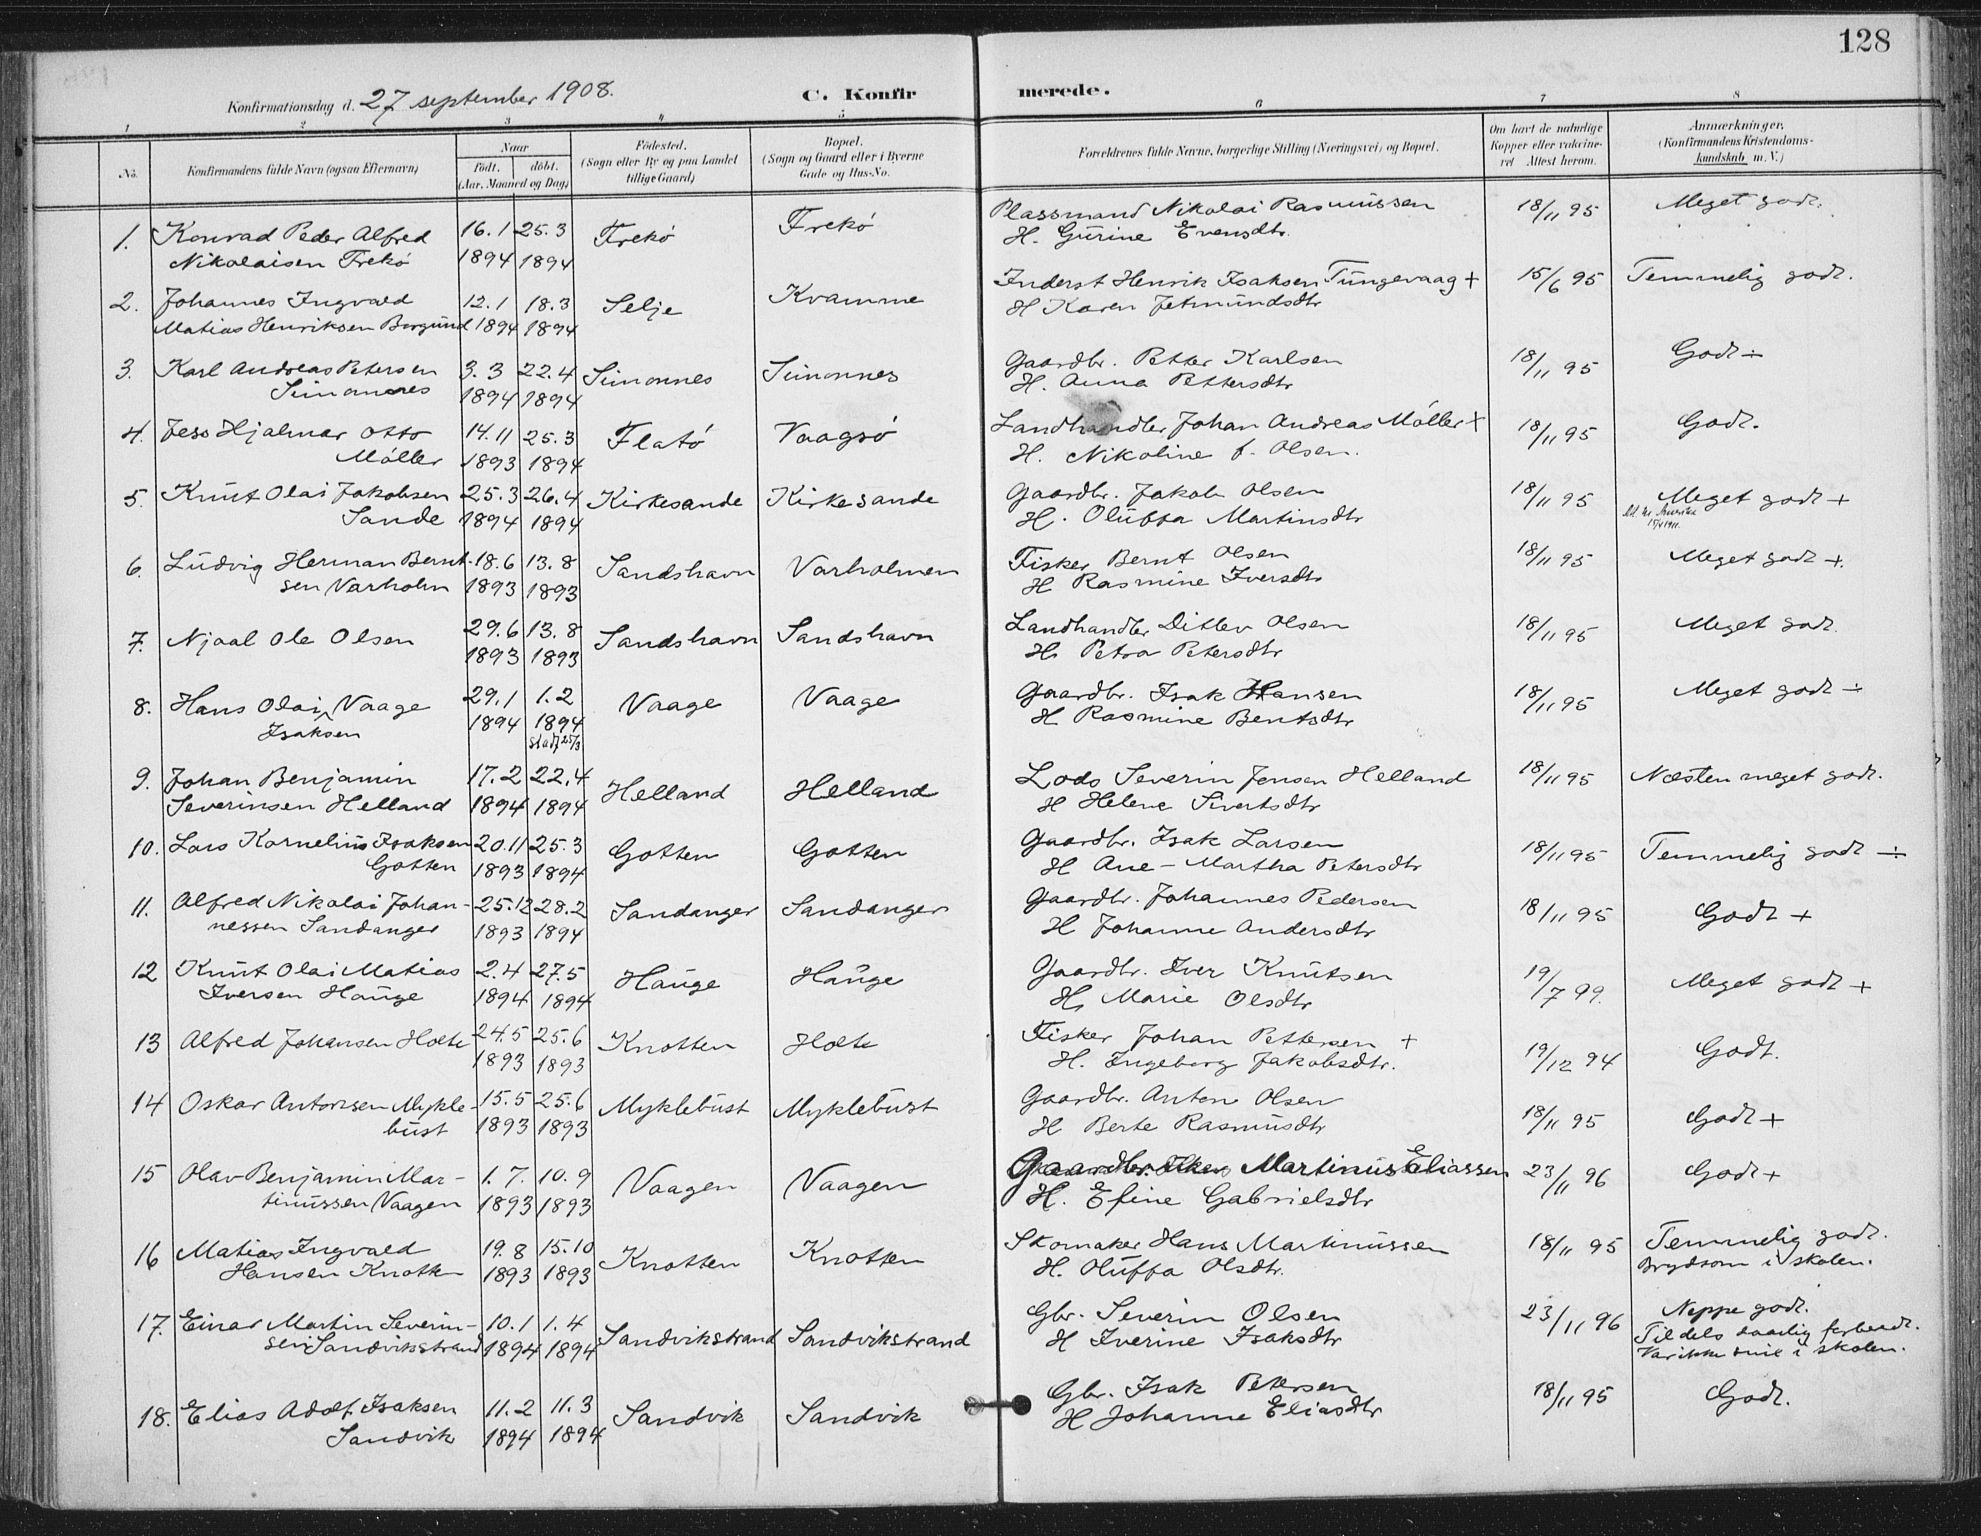 128
Konfirmationsdag d. 27 september 1908. C. Konfirmerede.
1 2 3 4 5 6 7 8
No. Konfirmandens fulde Navn (ogsaa Efternavn) Naar født. døbt. (Aar, Maaned og Dag) Fødested. (Sogn eller By og paa Landet tillige Gaard) Bopæl. (Sogn og Gaard eller i Byerne Gade og Hus-No. Forældrenes fulde Navne, borgerlige Stilling (Næringsvei) og Bopæl. Om havt de naturlige Kopper eller vaccineret Attest herom. Anmærkninger. (Konfirmandens Kristendomskundskab m. V.)
1. Konrad Peder Alfred 16.1 25.3 Frekö Frekö Plassmand Nikolai Rasmussen 18/11 95 Meget godt.
Nikolaisen Frekö 1894 1894 H. Gurine Evensdtr.
2. Johannes Ingvald 12.1 18.3 Selje Kvamme Inderst Henrik Isaksen Tungevaag + 15/6 95 Temmelig godt.
Matias Henriksen Borgund 1894 1894 H Karen Jetmundsdtr
3. Karl Andreas Petersen 3.3 22.4 Simonnes Simonnes Gaardbr. Petter Karlsen 18/11 95 Godt ÷
Simonnes 1894 1894 H. Anna Pettersdtr
4. Jess Hjalmar Otto 14.11 25.3 Flatö Vaagsö Landhandler Johan Andreas Möller + 18/11 95 Godt.
Möller 1893 1894 H. Nikoline f. Olsen.
5. Knut Olai Jakobsen 25.3 26.4 Kirkesande Kirkesande Gaardbr. Jakob Olsen 18/11 95 Meget godt +
Sande 1894 1894 H. Oluffa Martinsdtr
6. Ludvig Herman Bernt- 18.6 13.8 Sandshavn Varholmen Fisker Bernt Olsen 18/11 95 Meget godt +.
sen Varholm 1893 1893 H Rasmine Iversdtr
7. Njaal Ole Olsen 29.6 13.8 Sandshavn Sandshavn Landhandler Ditlev Olsen 18/11 95 Meget godt.
1893 1893 H. Petra Petersdtr
8. Hans Olai Vaage 29.1 1.2 Vaage Vaage Gaardbr. Isak Hansen 18/11 95 Meget godt ÷
Isaksen 1894 1894 H Rasmine Bentsdtr
stadf 25/3
9. Johan Benjamin 17.2 22.4 Helland Helland Lods Severin Jensen Helland 18/11 95 Næsten meget godt.
Severinsen Helland 1894 1894 H Helene Sivertsdtr
10. Lars Kornelius Isaksen 20.11 25.3 Gotten Gotten Gaardbr. Isak Larsen 18/11 95 Temmelig godt ÷
Gotten 1893 1894 H Ane-Martha Petersdtr
11. Alfred Nikolai Johan- 25.12 28.2 Sandanger Sandanger Gaardbr. Johannes Pedersen 18/11 95 Godt +
nessen Sandanger 1893 1894 H Johanne Andersdtr
12 Knut Olai Matias 2.4 27.5 Hauge Hauge Gaardbr. Iver Knutsen 19/7 99. Meget godt +
Iversen Hauge 1894 1894 H. Marie Olsdtr
13 Alfred Johansen Holte 24.5 25.6 Knotten Holte Fisker Johan Pettersen + 19/12 94 Godt.
1893 1893 H. Ingeborg Jakobsdtr.
14 Oskar Antonsen Mykle- 15.5 25.6 Myklebust Myklebust Gaardbr. Anton Olsen 18/11 95 Godt +
bust 1893 1893 H Berte Rasmusdtr
15 Olav Benjamin Mar- 1.7. 10.9 Vaagen Vaagen Gaardbr. Martinus Eliassen 23/11 96 Godt +
tinussen Vaagen 1893 1893 H. Efine Gabrielsdtr
16 Matias Ingvald 19.8 15.10 Knotten Knotten Skomaker Hans Martinussen 18/11 95 Temmelig godt.
Hansen Knotten 1893 1893 H. Oluffa Olsdtr. Brydsom i skolen.
17. Einar Martin Severin- 10.1 1.4 Sandvikstrand Sandvikstrand Gbr. Severin Olsen 23/11 96 Neppe godt.
sen Sandvikstrand 1894 1894 H Iverine Isaksdtr Tildels daarlig forberedt.
Var ikke snil i skolen.
18. Elias Adolf Isaksen 11.2 11.3 Sandvik Sandvik Gbr. Isak Petersen 18/11 95 Godt.
Sandvik 1894 1894 H Johanne Eliasdtr